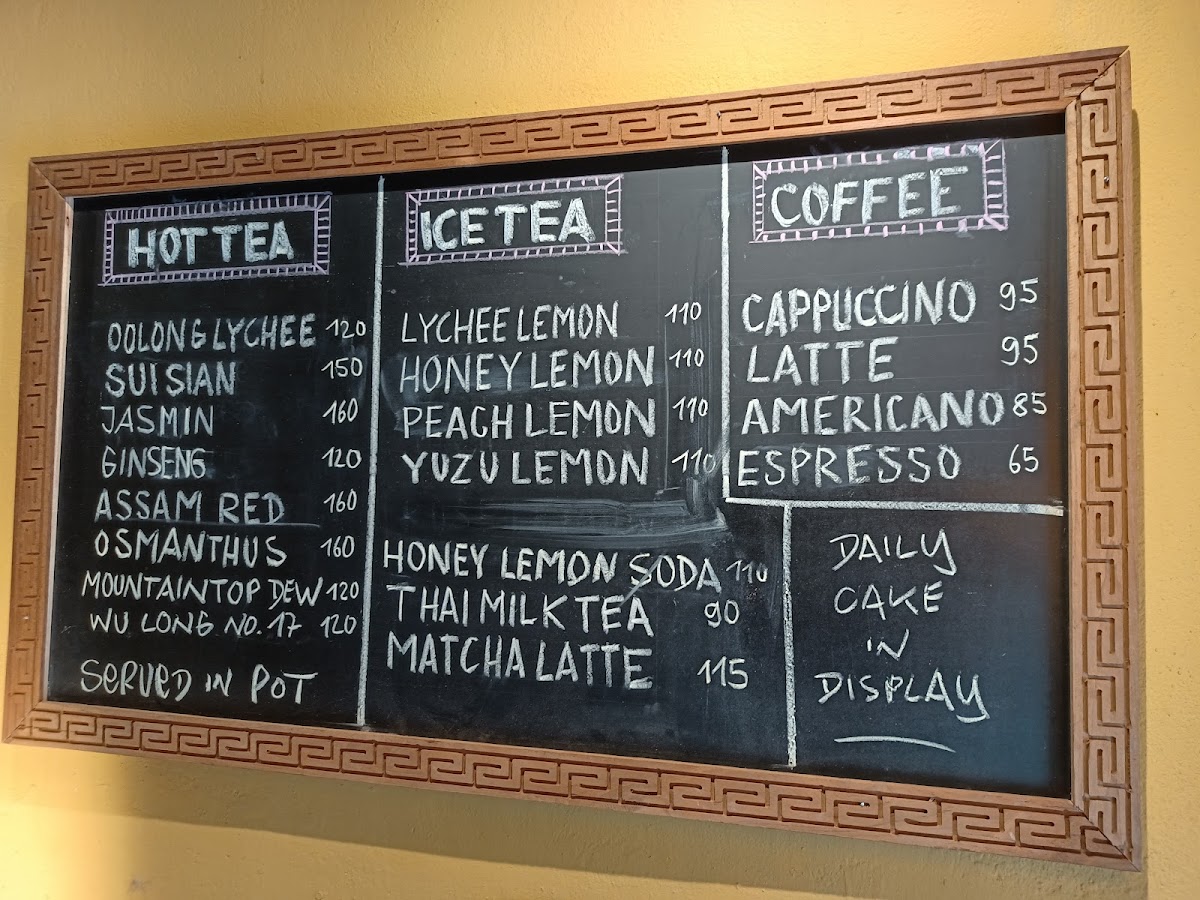 HOT TEA
OOLONG LYCHEE 120
SUI SIAN 150
JASMIN 160
GINSENG 120
ASSAM RED 160
OSMANTHUS 160
MOUNTAINTOP DEW 120
WU LONG NO. 17 120
SERVED IN POT
ICE TEA
LYCHEE LEMON 110
HONEY LEMON 110
PEACH LEMON 110
YUZU LEMON 110
HONEY LEMON SODA 110
THAI MILK TEA 90
MATCHA LATTE 115
COFFEE
CAPPUCCINO 95
LATTE 95
AMERICANO 85
ESPRESSO 65
DAILY
CAKE
IN
DISPLAY